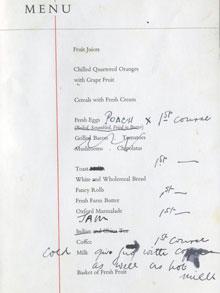 MENU
Fruit Juices
Chilled Quartered Oranges
with Grape Fruit
Cereals with Fresh Cream
Fresh Eggs POACH x 1st Course
(Boiled, Scrambled, Fried in Butter)
Grilled Bacon Tomatoes
Mushrooms Chipolatas
Toast
White and Wholemeal Bread
Fancy Rolls 1st —
Fresh Farm Butter
Oxford Marmalade 1st —
JAM
Indian and China Tea
Coffee 1st Course
Cold Milk jug with
as well as hot
milk
Basket of Fresh Fruit